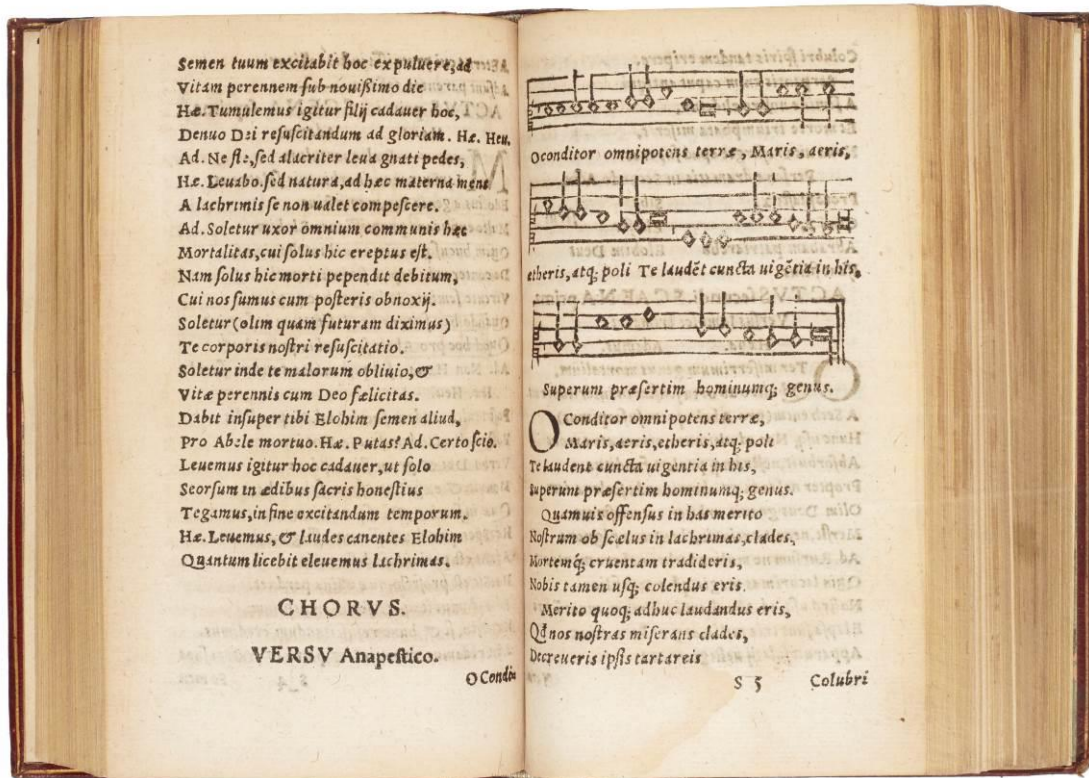 Semen tuum excitabit hoc ex puluere, ad
Vitam perennem sub nouißimo die
Hæ. Tumulemus igitur filij cadauer hoc,
Denuo Dei resuscitandum ad gloriam. Hæ. Heu.
Ad. Ne fle, sed alacriter leua gnati pedes,
Hæ. Leuabo. sed natura, ad hæc materna mens
A lachrimis se non ualet compescere.
Ad. Soletur uxor omnium communis hæc
Mortalitas, cui solus hic ereptus est.
Nam solus hic morti pependit debitum,
Cui nos sumus cum posteris obnoxij.
Soletur (olim quam futuram diximus)
Te corporis nostri resuscitatio.
Soletur inde te malorum obliuio, &
Vitæ perennis cum Deo fælicitas.
Dabit insuper tibi Elohim semen aliud,
Pro Abele mortuo. Hæ. Putas? Ad. Certo scio.
Leuemus igitur hoc cadauer, ut solo
Seorsum in ædibus sacris honestius
Tegamus, in fine excitandum temporum.
Hæ. Leuemus, & laudes canentes Elohim
Quantum licebit eleuemus lachrimas.
CHORVS.
VERSV Anapestico.
O Condi
O conditor omnipotens terræ, Maris, aeris,
etheris, atq; poli Te laudēt cuncta uigētia in his,
Superum præsertim hominumq; genus.
O Conditor omnipotens terræ,
Maris, aeris, etheris, atq; poli
Te laudent cuncta uigentia in his,
Superum præsertim hominumq; genus.
Quamuis offensus in has merito
Nostrum ob scælus in lachrimas, clades,
Mortemq́; cruentam tradideris,
Nobis tamen usq; colendus eris.
Merito quoq; adhuc laudandus eris,
Qđ nos nostras miserans clades,
Decreueris ipsis tartareis
S 5 Colubri